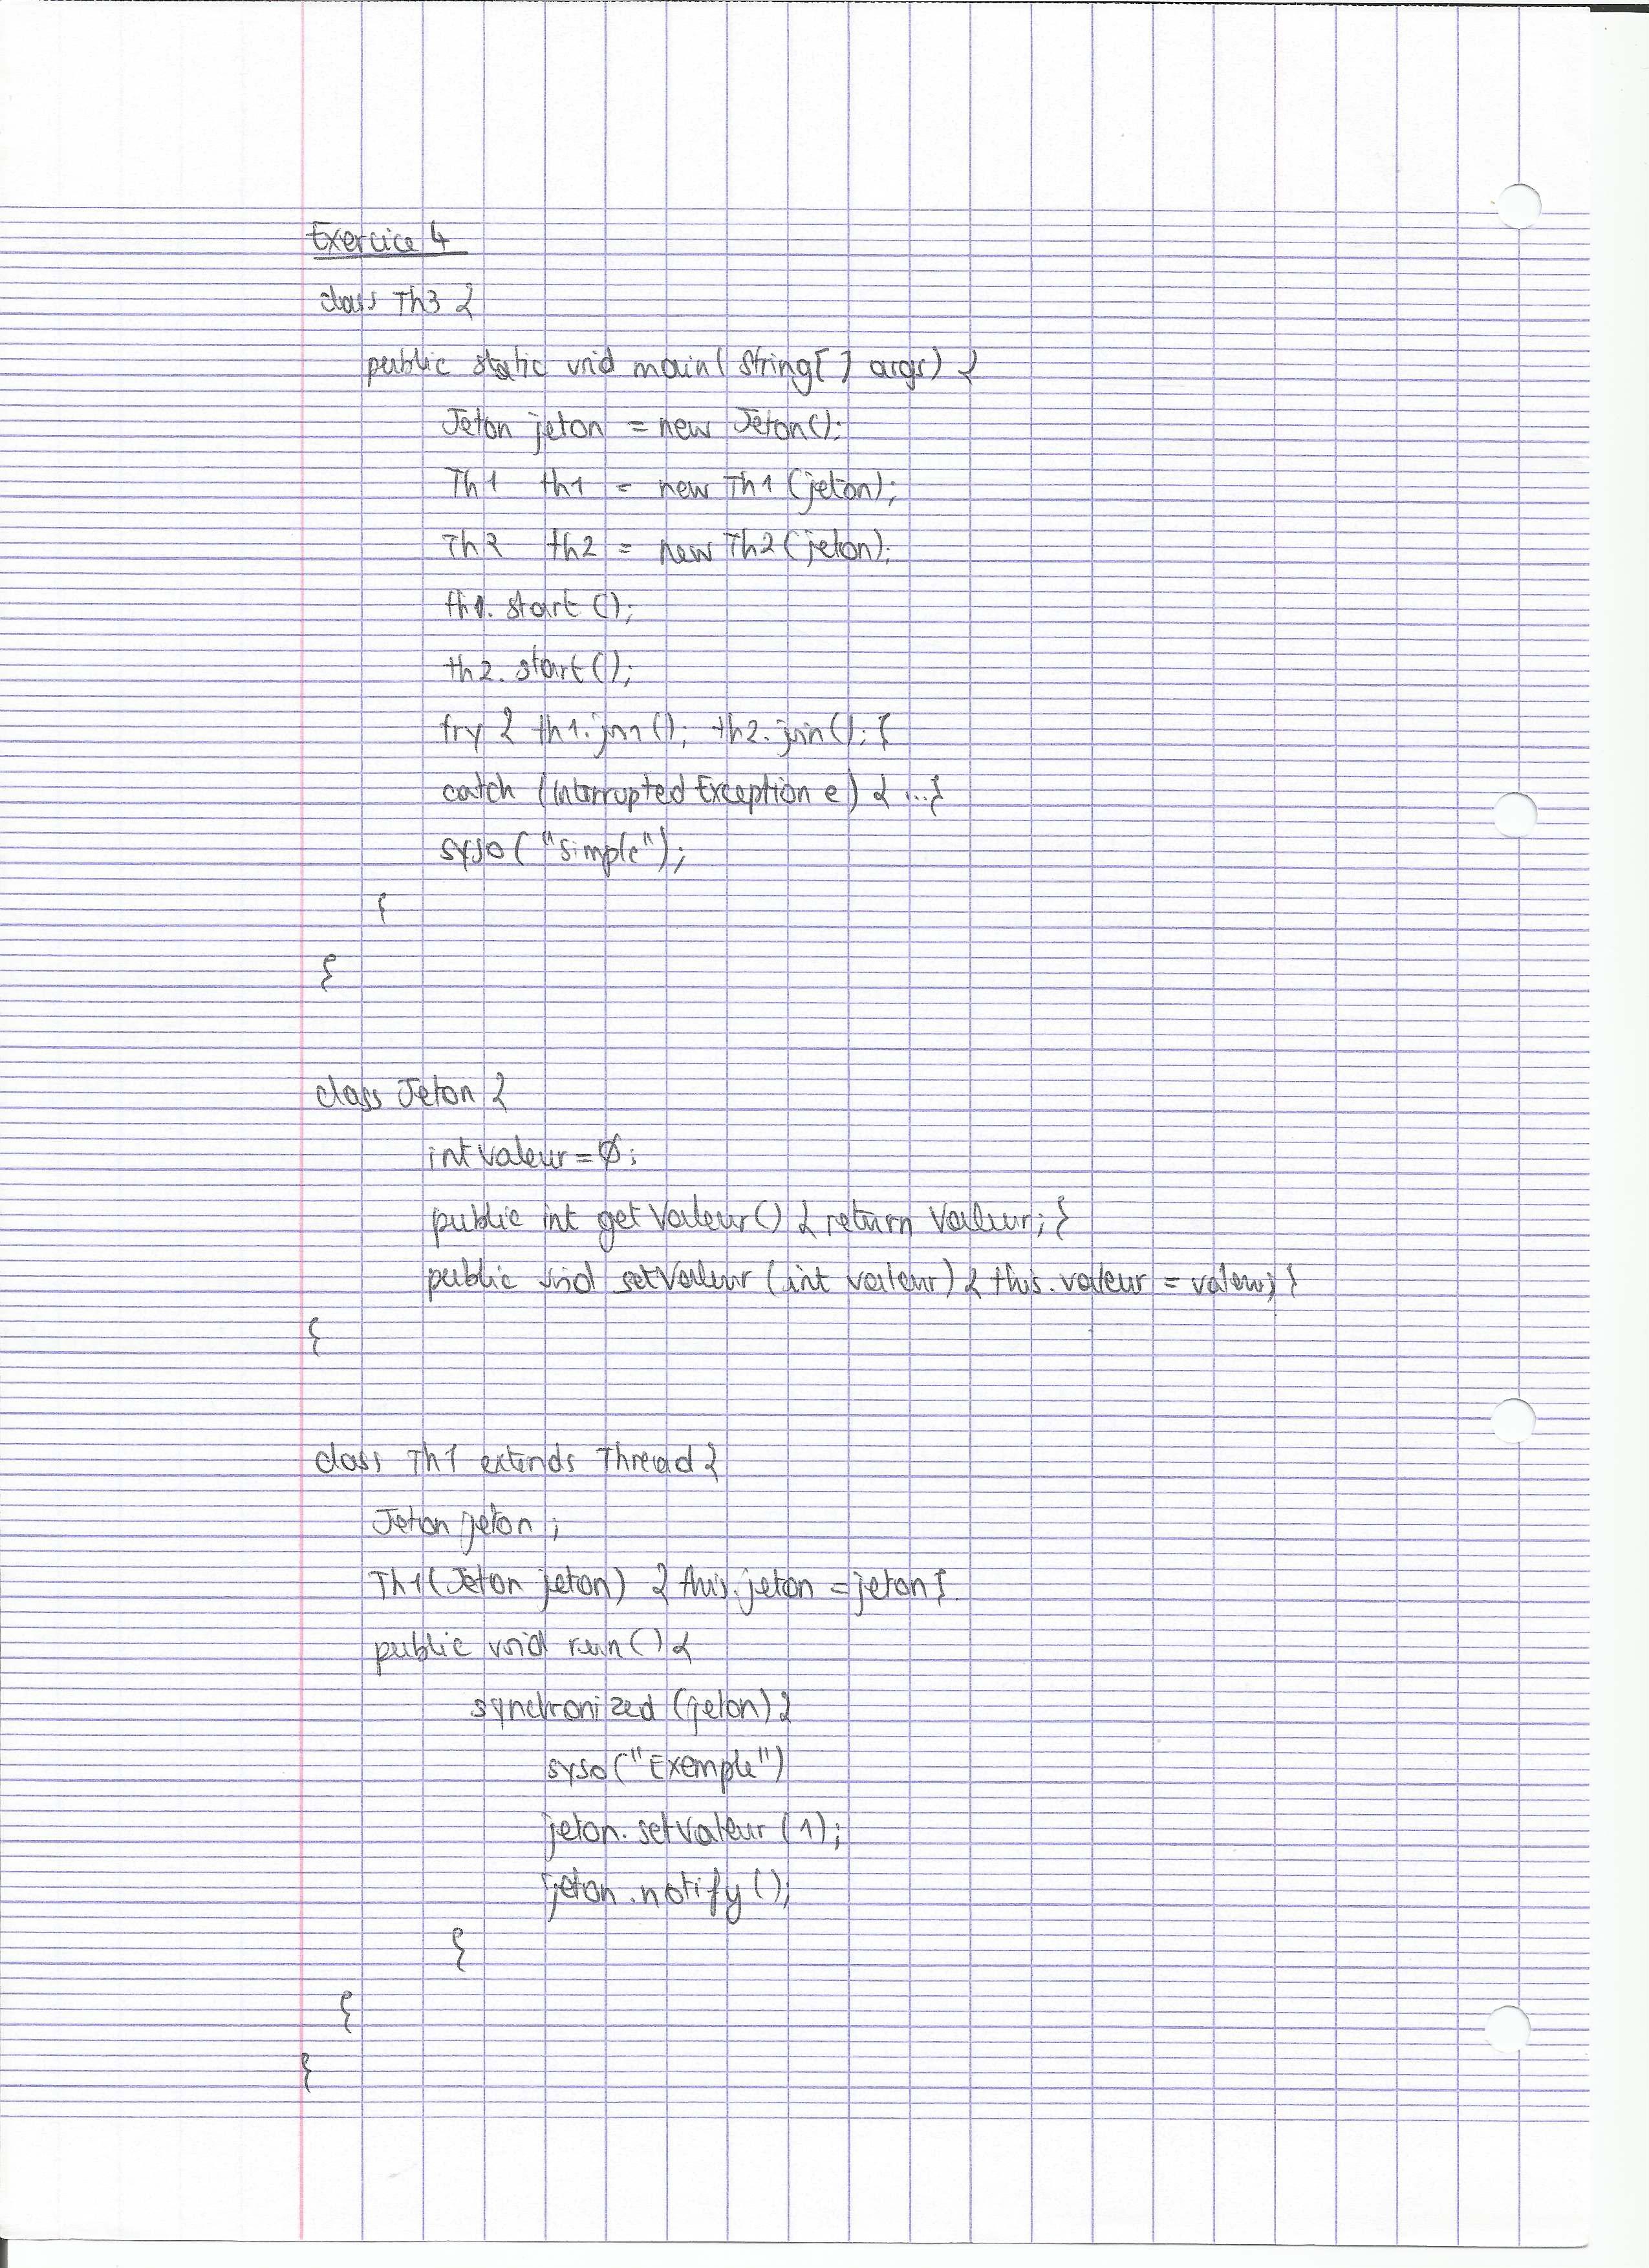 Exercice 4
class Th3 {
public static void main( String[ ] args) {
Jeton jeton = new Jeton();
Th1 th1 = new Th1 (jeton);
Th2 th2 = new Th2 (jeton);
th1. start ();
th2. start ();
try { th1.join(); th2.join(); }
catch (Interrupted Exception e) { ...}
syso( "simple");
}
}
class Jeton {
int valeur = 0;
public int get Valeur() { return Valeur; }
public void setValeur (int valeur) { this.valeur = valeur; }
}
class Th1 extends Thread {
Jeton jeton ;
Th1(Jeton jeton) { this.jeton = jeton }.
public void run () {
synchronized (jeton) {
syso("Exemple")
jeton. setValeur (1);
jeton.notify ();
}
}
}